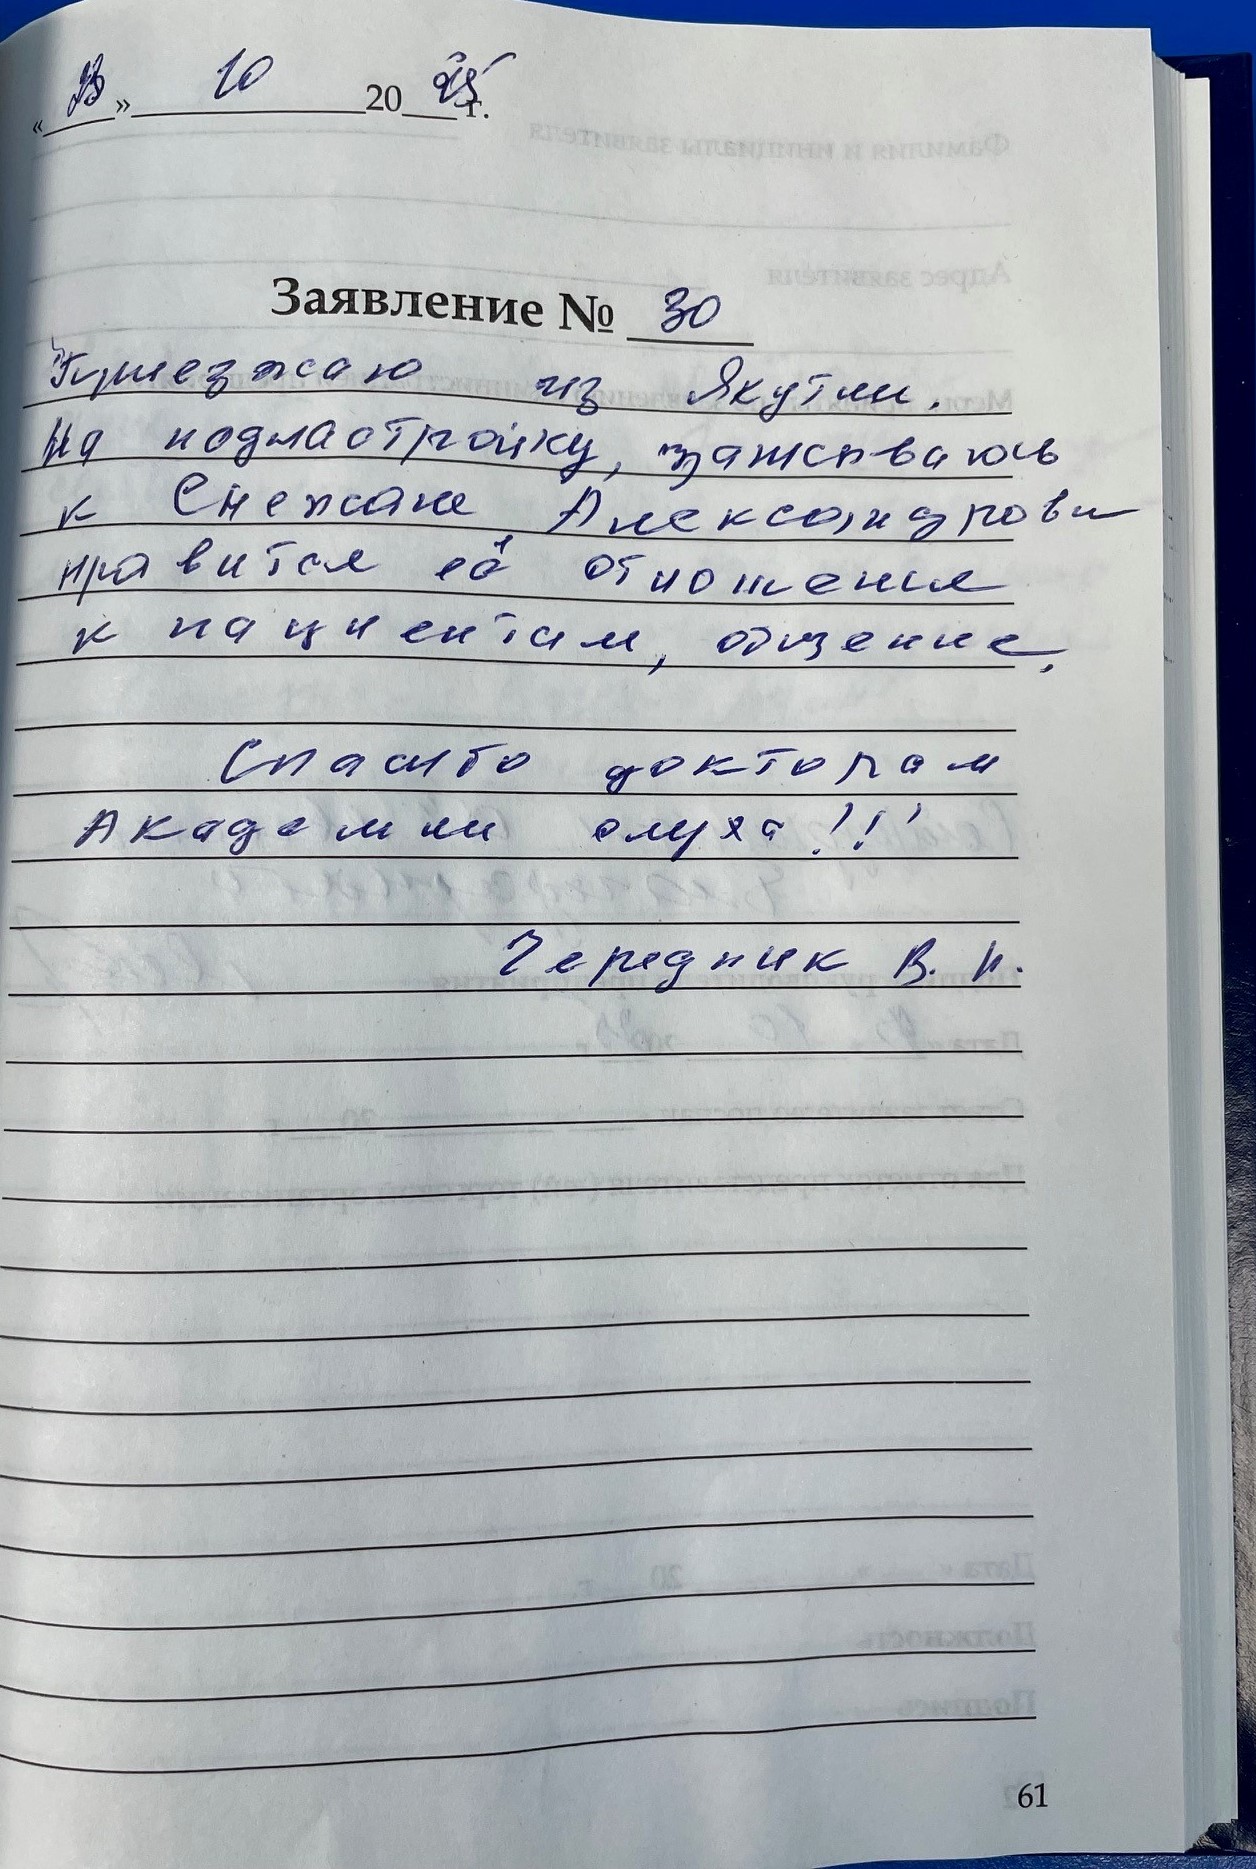 « » 10 2025 г.
Заявление № 30
Приезжаю из Якутии.
На подластройку, записываюсь
к Снежане Александровн
нравится её отношения
к пациентам, общение.
Спасибо докторам
Академии слуха!!!
Чередник В. Н.
61